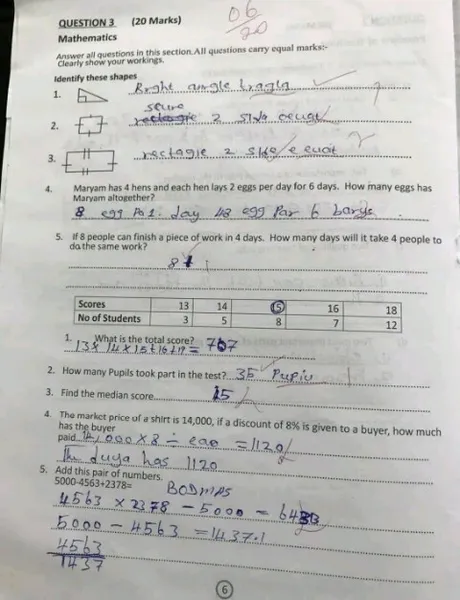 06
20
QUESTION 3 (20 Marks)
Mathematics
Answer all questions in this section.All questions carry equal marks:-
Clearly show your workings.
Identify these shapes
1. Rrght angle
2. 2
3. rectagle 2
4. Maryam has 4 hens and each hen lays 2 eggs per day for 6 days. How many eggs has
Maryam altogether?
8 egg Par 1. day 48 egg Par 6
5. If 8 people can finish a piece of work in 4 days. How many days will it take 4 people to
do the same work?
8
Scores 13 14 15 16 18
No of Students 3 5 8 7 12
1. What is the total score?
13 x 14 x 15 + 16 + = 767
2. How many Pupils took part in the test? 35 Pupiu
3. Find the median score 15
4. The market price of a shirt is 14,000, if a discount of 8% is given to a buyer, how much
has the buyer
paid 14,000 x 8 ÷ = 1120
has 1120
5. Add this pair of numbers.
5000-4563+2378= BODMAS
4563 x 2378 - 5000 =
5000 - 4563 = 1437.1
4563
1437
6